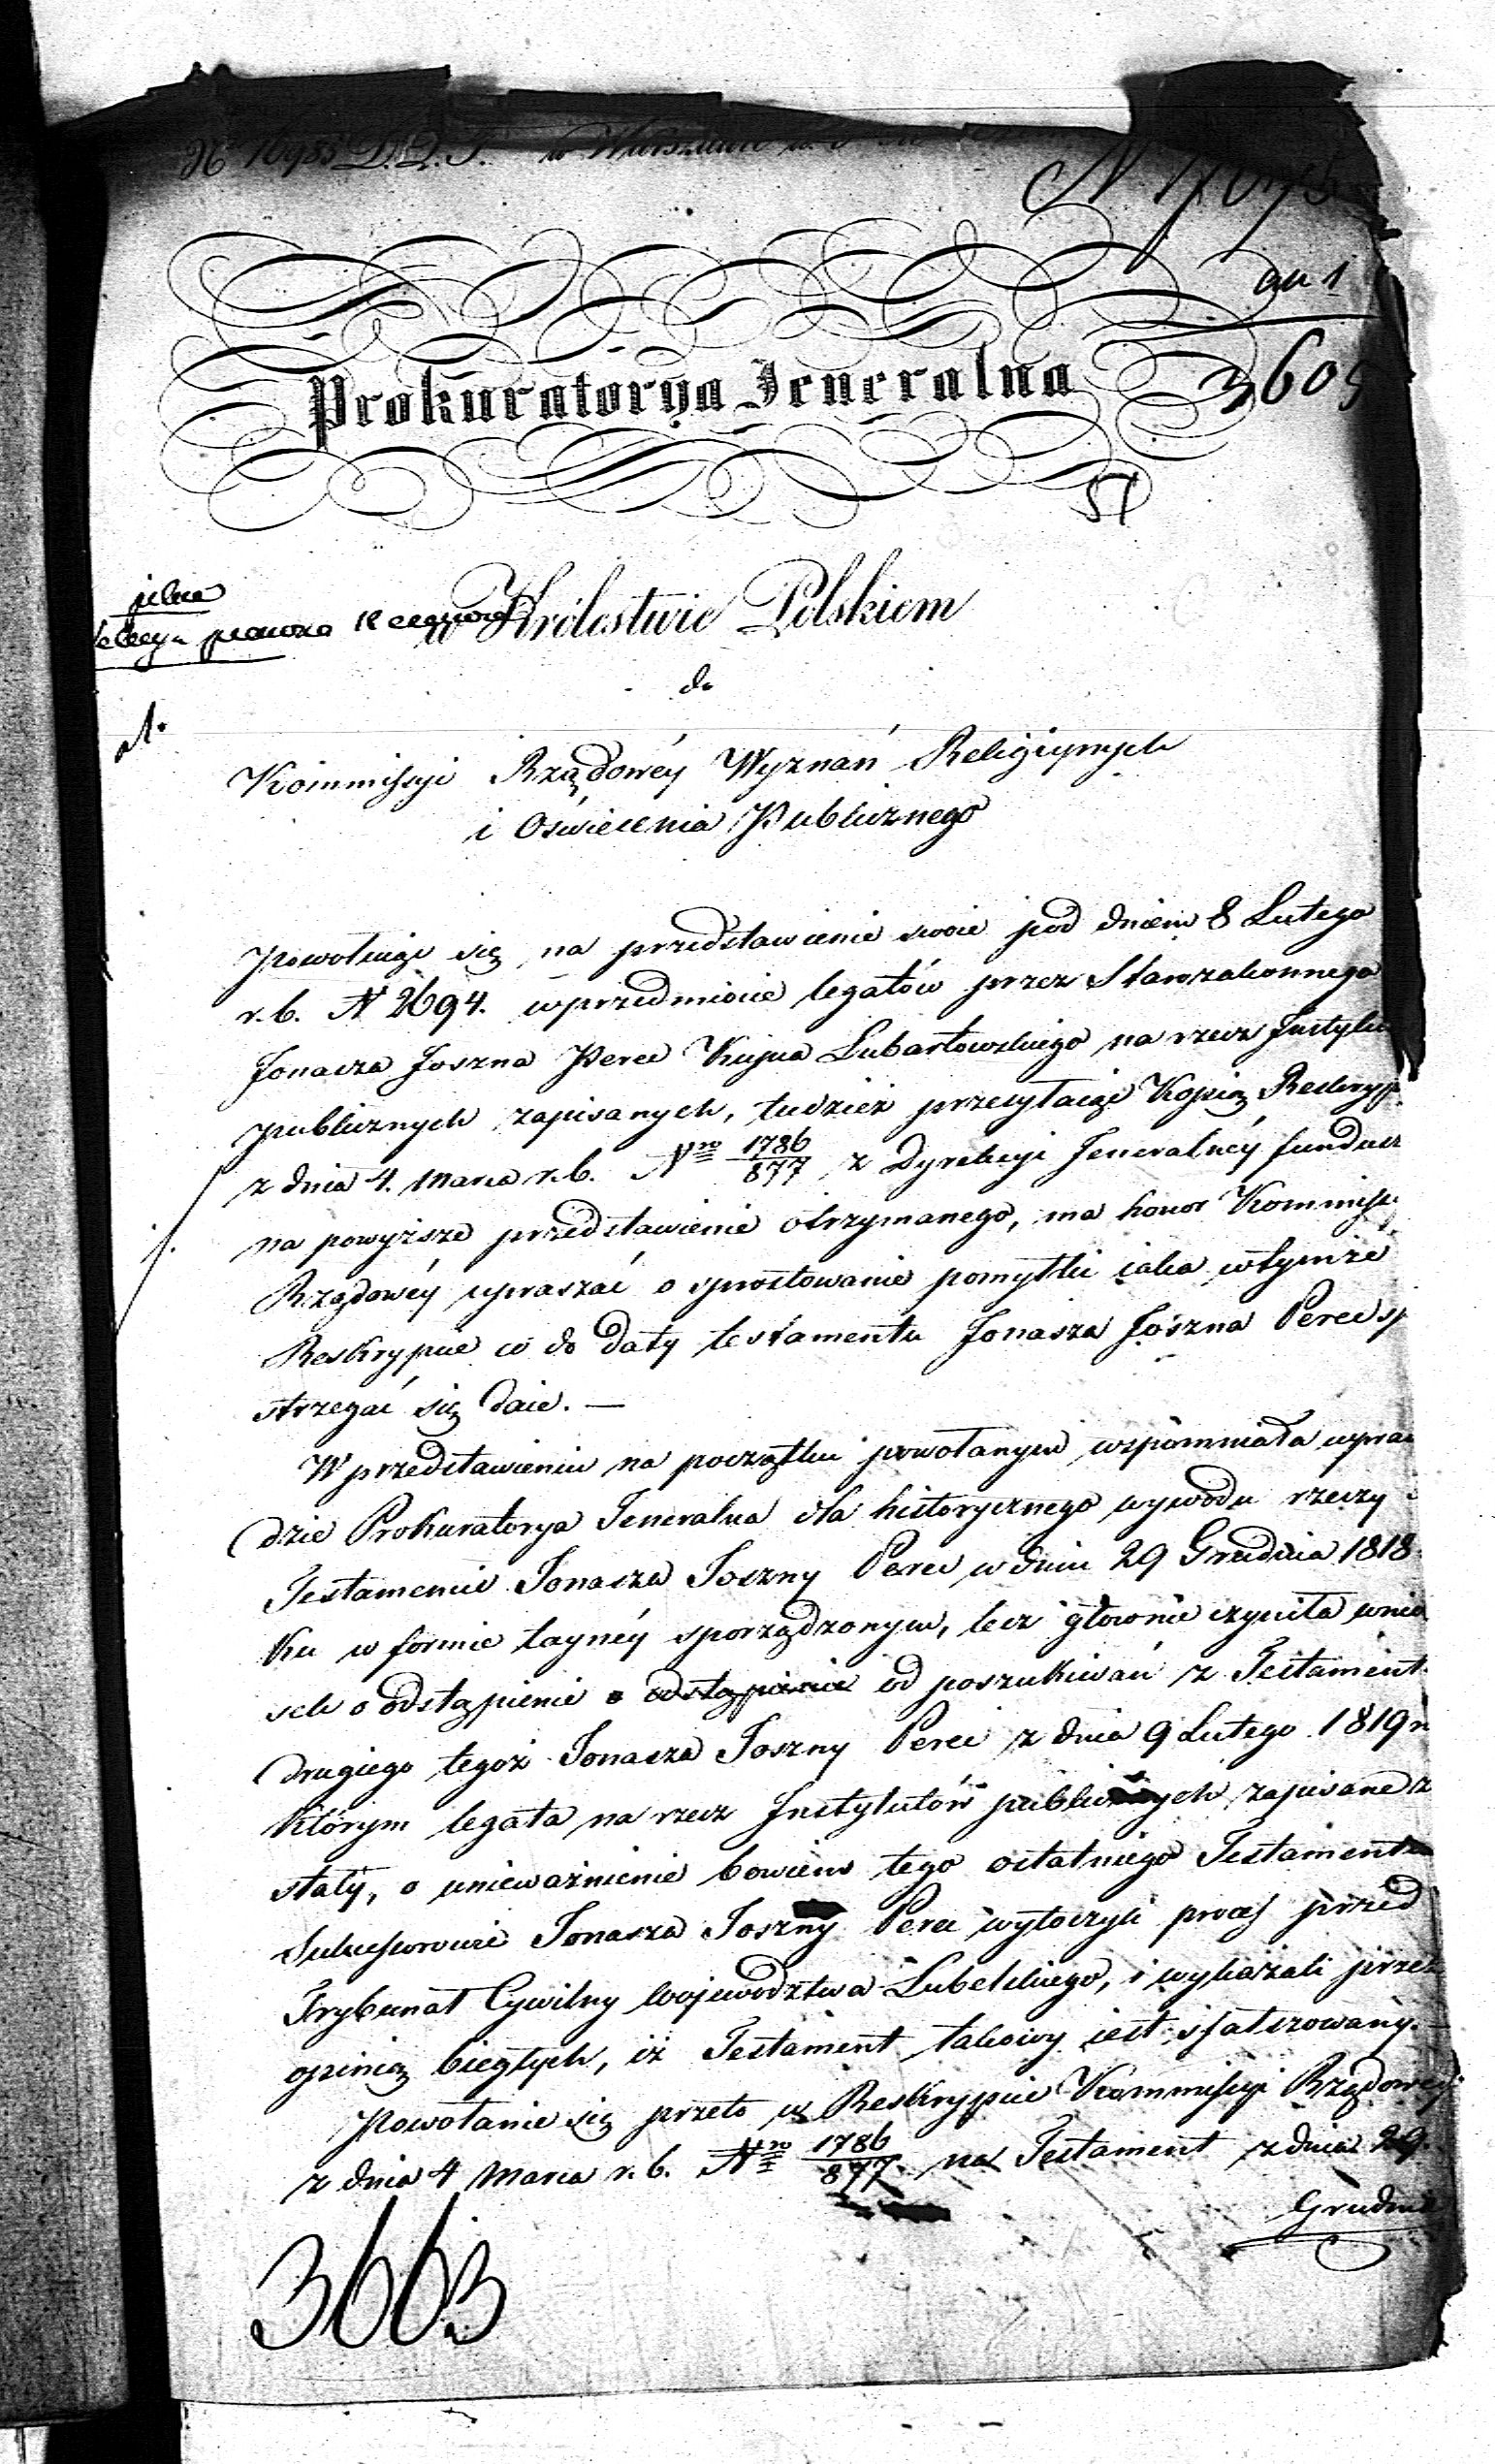 № 16985 D.Q.T. w Warszawie
N 17075
ad 1
3605
Prokuratorya Jeneralna
51
pilne
w Królestwie Polskiem
do
Kommissyi Rządowéy Wyznań Religiynych
i Oświecenia Publicznego
Powołuiąc się na przedstawienie swoie pod dniem 8 Lutego
r.b. N 2694. w przedmiocie legatów przez Starozakonnego
Jonasza Joszna Perec Kupca Lubartowskiego na rzecz Instytu
publicznych zapisanych, tudzież przesyłaiąc Kopią Reskryp
z dnia 4. Marca r.b. Nro 1786/877 z Dyrekcyi Jeneralnéy fundusz
na powyższe przedstawienie otrzymanego, ma honor Kommiss
Rządowéy upraszać o sprostowanie pomyłki iaka w tymże
Reskrypcie co do daty testamentu Jonasza Joszna Perec sp
strzegać się daie. —
W przedstawieniu na początku powołanym wspomniała wpraw
dzie Prokuratorya Jeneralna dla historycznego wywodu rzeczy
Testamencie Jonasza Joszny Perec w dniu 29 Grudnia 1818
ku w formie taynéy sporządzonym, lecz głownie czyniła wnio
sek o odstąpienie o odstąpienie od poszukiwań z Testament
drugiego tegoż Jonasza Joszny Perec z dnia 9 Lutego 1819 r
którym legata na rzecz Instytutów publicznych zapisane z
stały, o unieważnienie bowiem tego ostatniego Testamentu
Sukcessorowie Jonasza Joszny Perec wytoczyli proces przed
Trybunał Cywilny Województwa Lubelskiego, i wykazali przez
opinią biegłych, iż Testament takowy iest sfałszowany. —
Powołanie się przeto w Reskrypcie Kommissyi Rządowéy
z dnia 4 Marca r.b. Nro 1786/877. na Testament z dnia 29.
Grudnia
3663